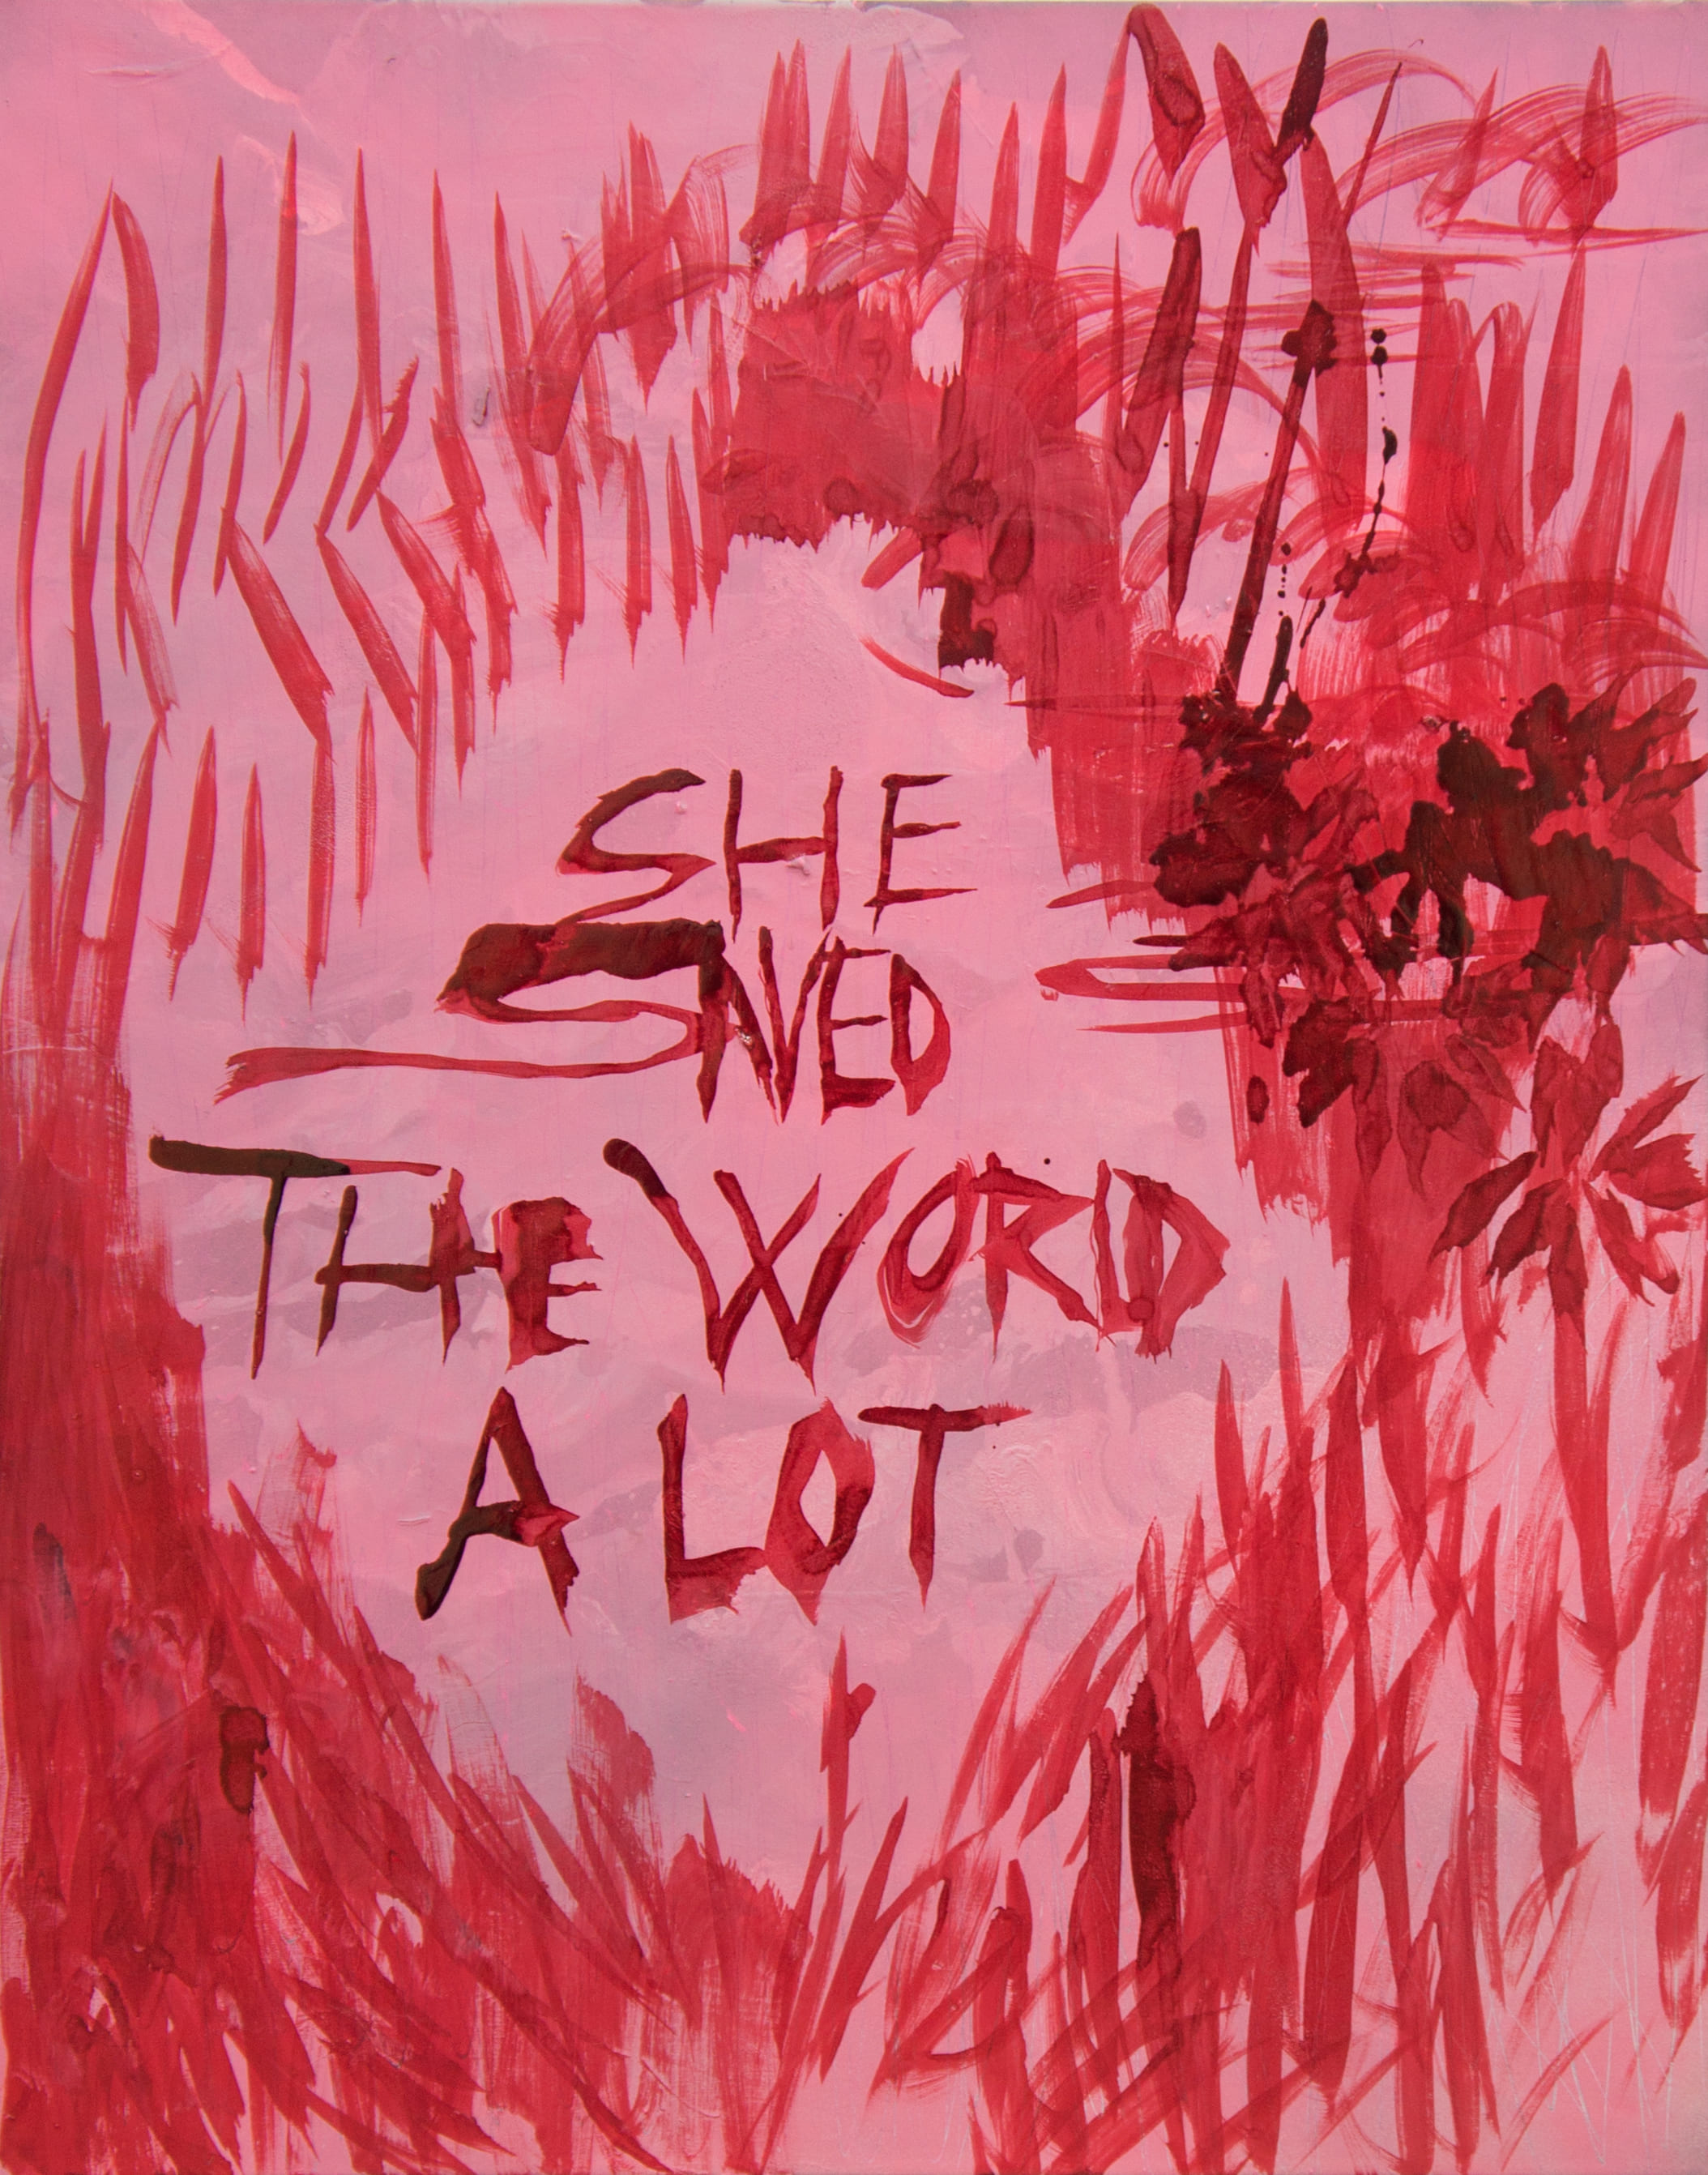 SHE
SAVED
THE WORD
A LOT